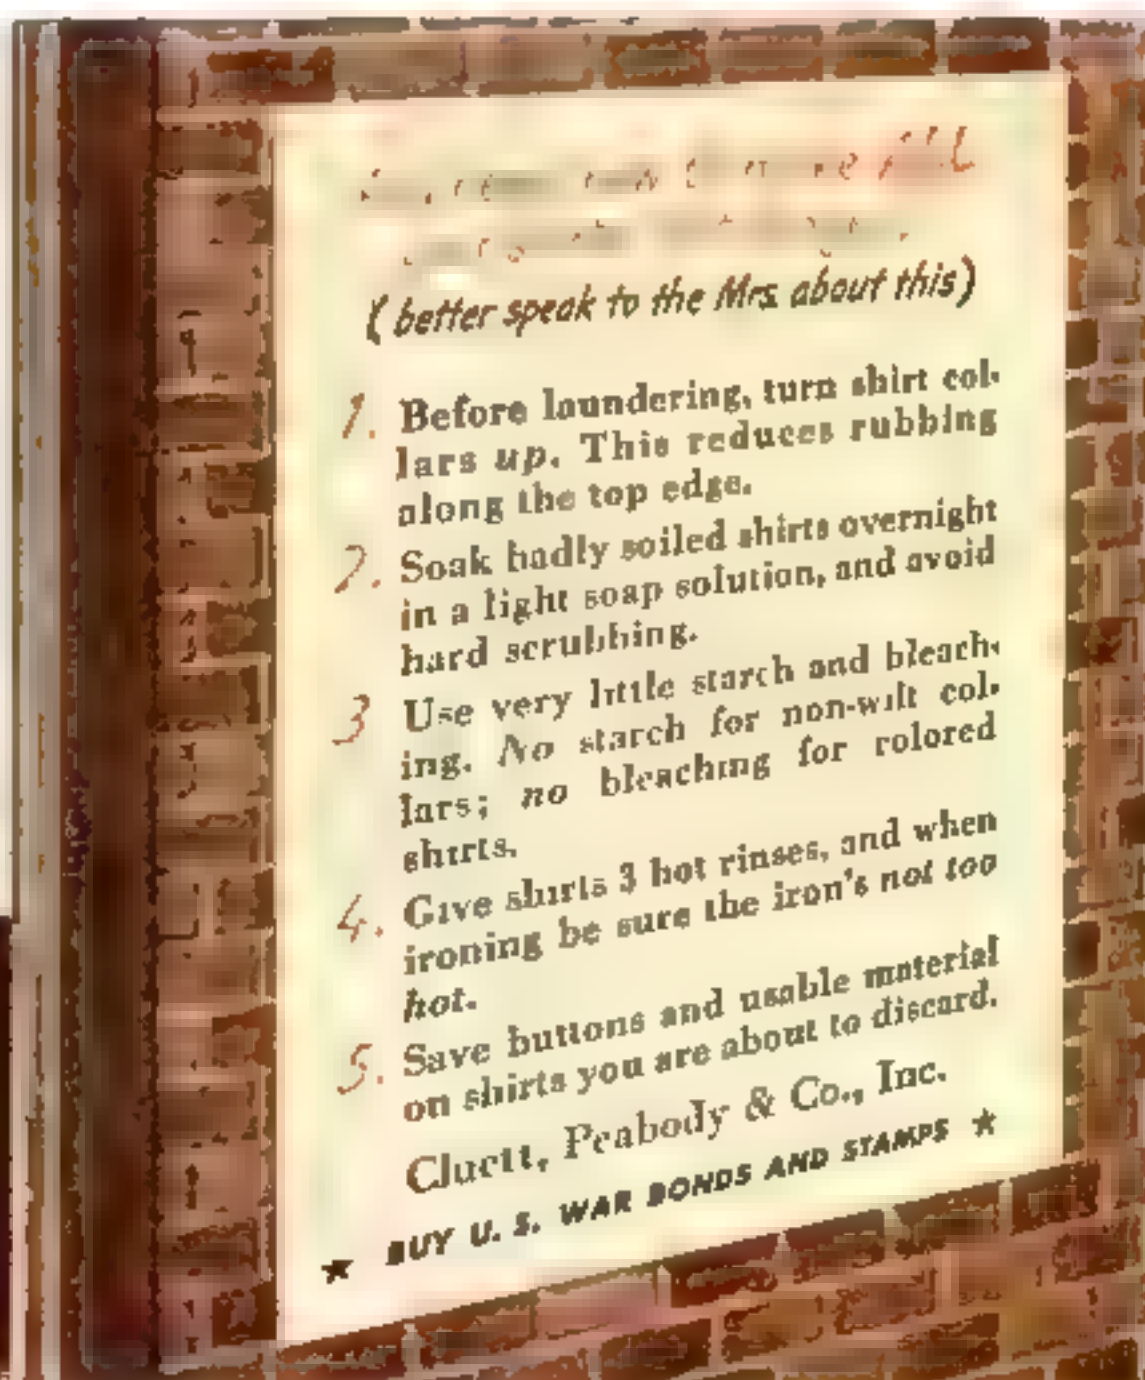 (better speak to the Mrs. about this)
1. Before laundering, turn shirt col-
lars up. This reduces rubbing
along the top edge.
2. Soak badly soiled shirts overnight
in a light soap solution, and avoid
hard scrubbing.
3 Use very little starch and bleach-
ing. No starch for non-wilt col-
lars; no bleaching for colored
shirts.
4. Give shirts 3 hot rinses, and when
ironing be sure the iron's not too
hot.
5. Save buttons and usable material
on shirts you are about to discard.
Cluett, Peabody & Co., Inc.
★ BUY U. S. WAR BONDS AND STAMPS ★